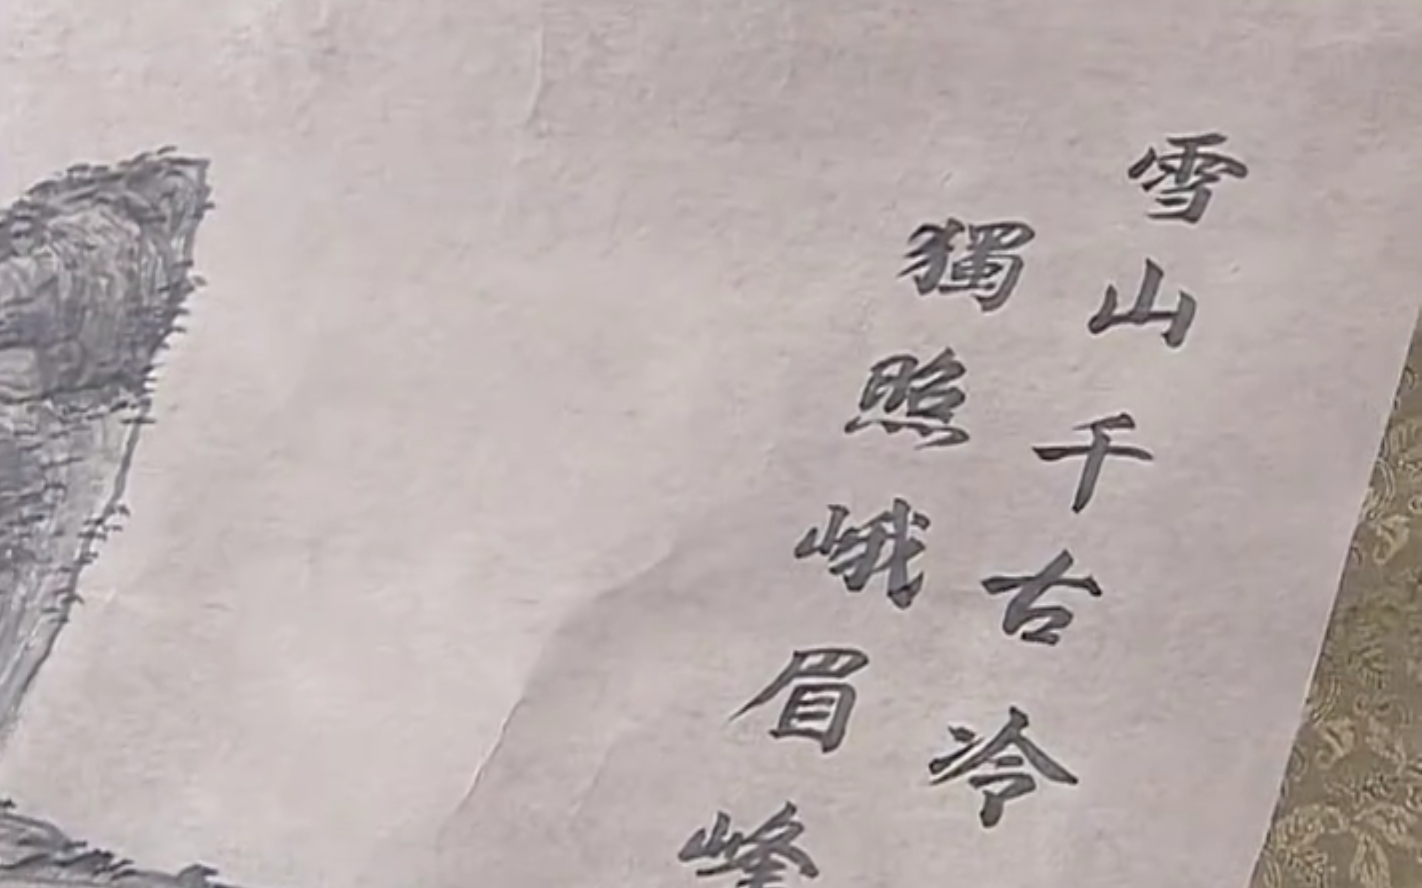 雪山千古冷
獨照峨眉峰